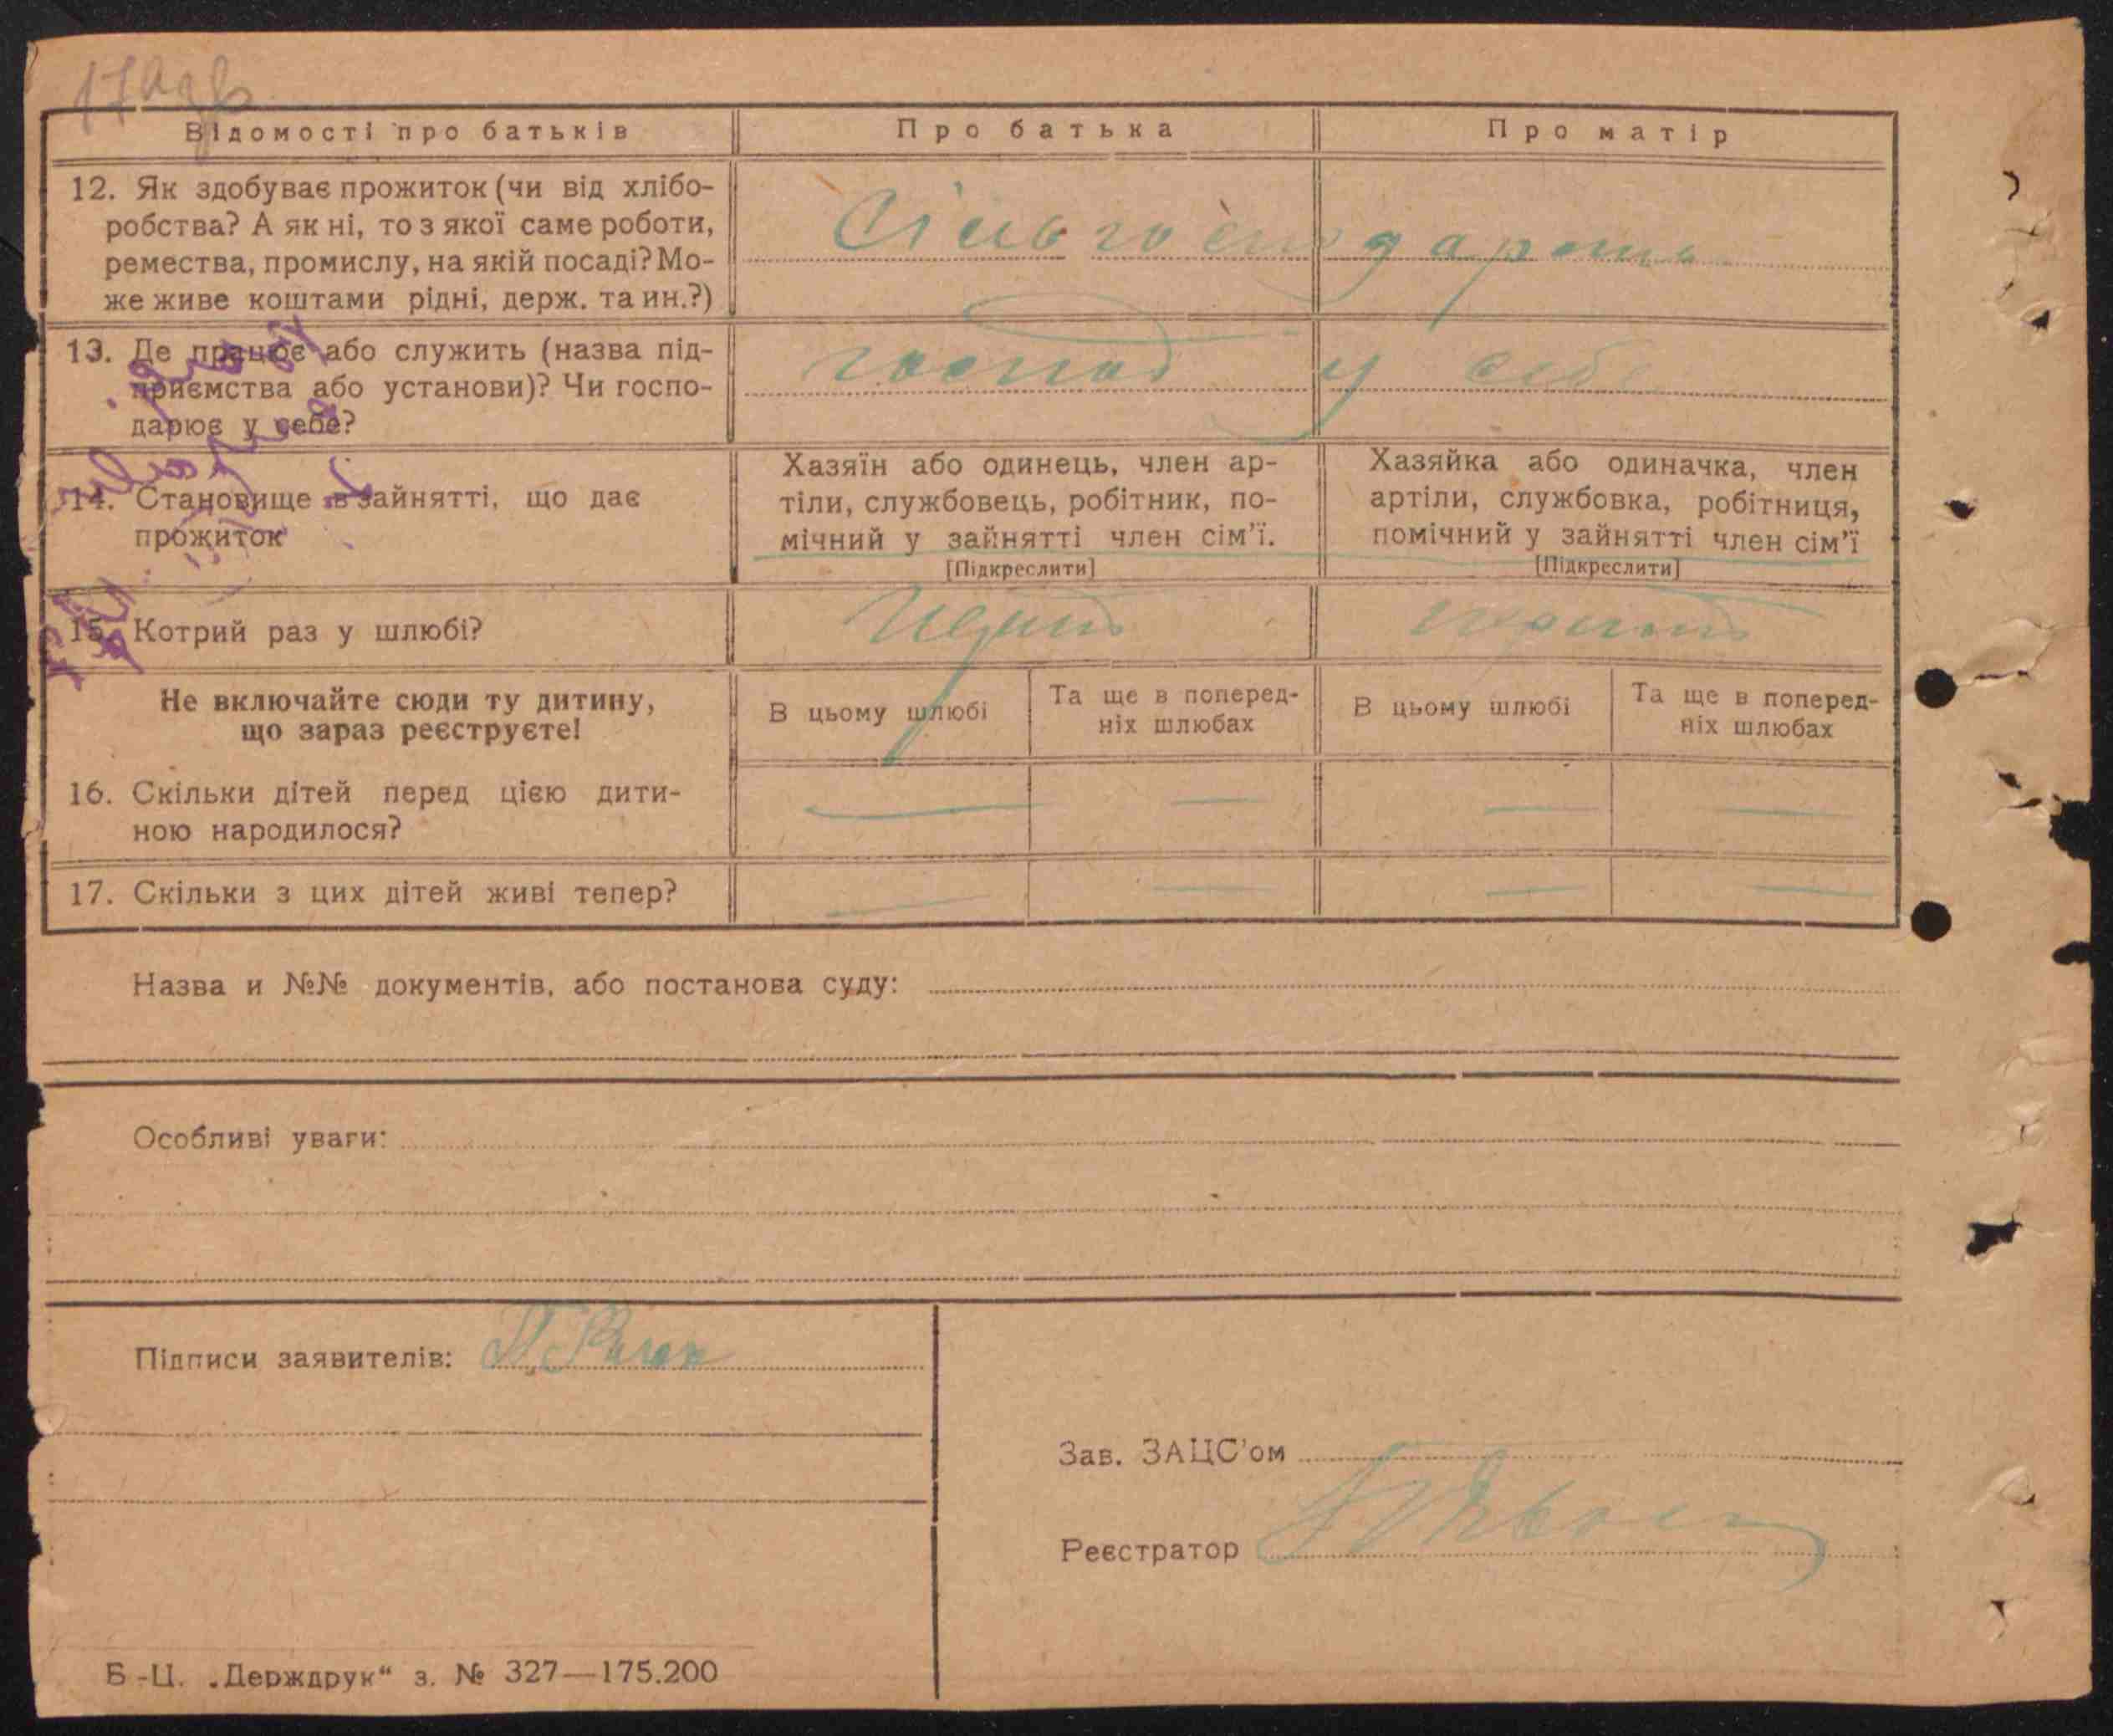 Відомості про батьків
Про батька
Про матір
12. Як здобуває прожиток (чи від хлібо-
робства? А як ні, то з якої саме роботи,
ремества, промислу, на якій посаді? Мо-
же живе коштами рідні, держ. та ин.?)
13. Де працює або служить (назва під-
приємства або установи)? Чи госпо-
дарює у себе?
господ у себе
14. Становище в зайнятті, що дає
прожиток
Хазяїн або одинець, член ар-
тіли, службовець, робітник, по-
мічний у зайнятті член сім'ї.
[Підкреслити]
Хазяйка або одиначка, член
артіли, службовка, робітниця,
помічний у зайнятті член сім'ї
[Підкреслити]
15. Котрий раз у шлюбі?
Не включайте сюди ту дитину,
що зараз реєструєте!
В цьому шлюбі
Та ще в поперед-
ніх шлюбах
В цьому шлюбі
Та ще в поперед-
ніх шлюбах
16. Скільки дітей перед цією дити-
ною народилося?
— — — —
17. Скільки з цих дітей живі тепер?
— — — —
Назва и №№ документів, або постанова суду:
Особливі уваги:
Підписи заявителів:
Зав. ЗАЦС'ом
Реєстратор
Б-Ц. „Держдрук“ з. № 327—175.200